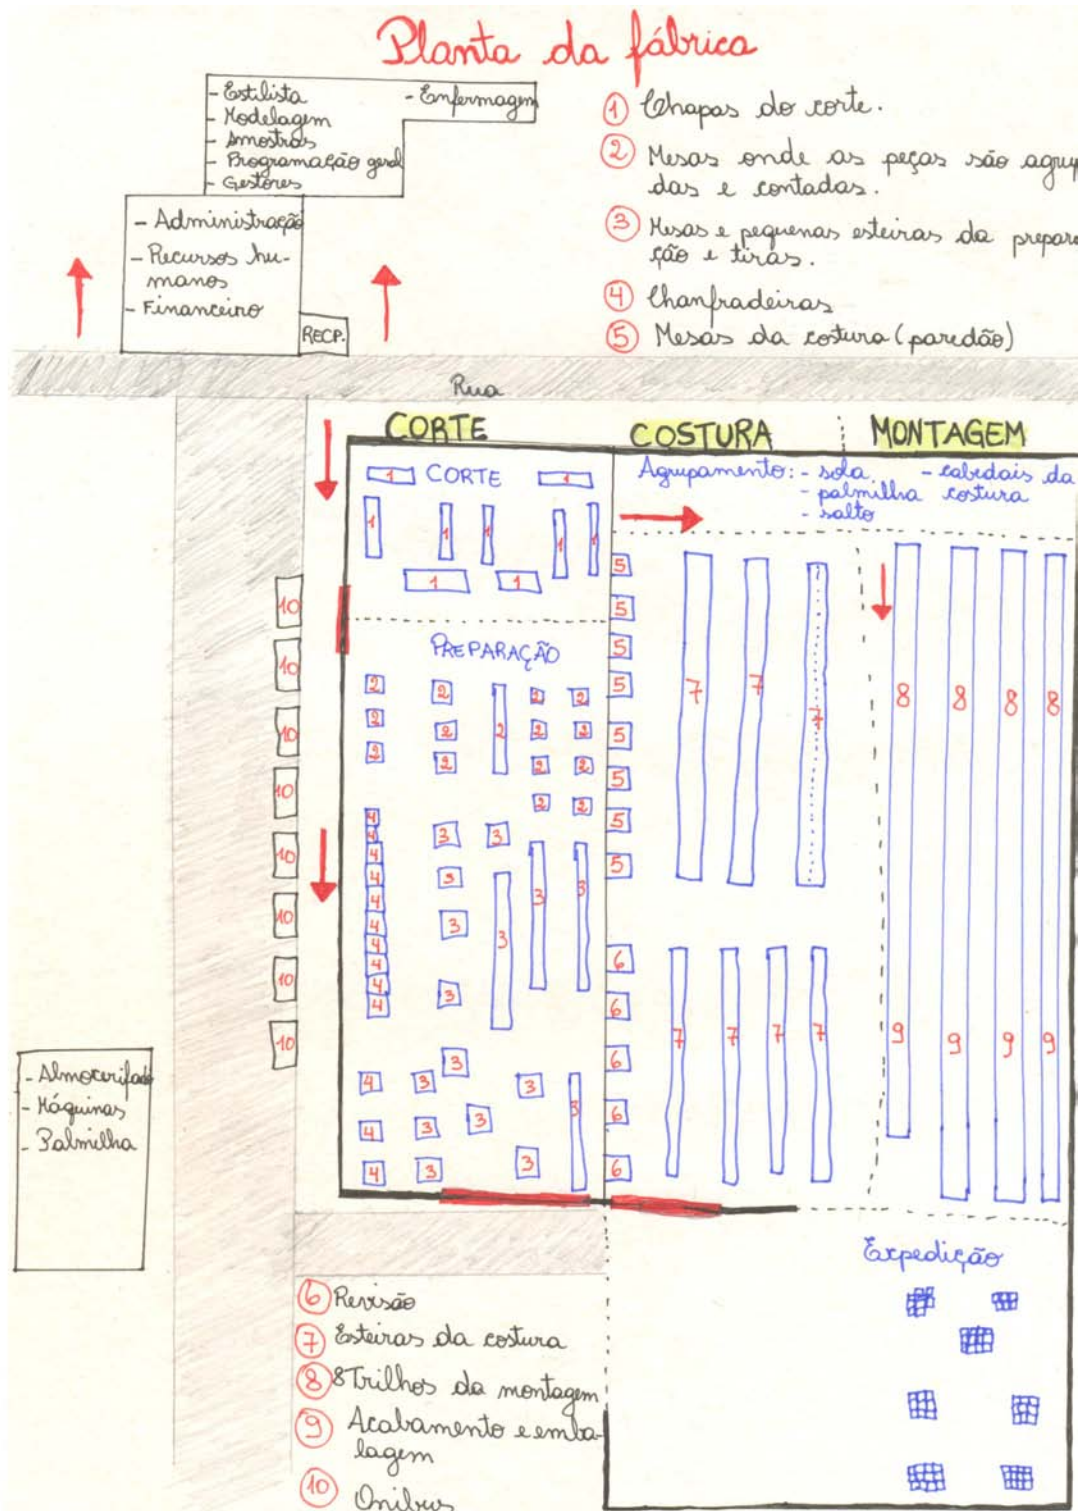 Planta da fábrica
- Estilista
- Modelagem
- Amostras
- Programação geral
- Gestores
- Enfermagem
- Administração
- Recursos hu-
manos
- Financeiro
RECP.
1 Chapas do corte.
2 Mesas onde as peças são agrup
das e contadas.
3 Mesas e pequenas esteiras da prepara
ção e tiras.
4 Chanfradeiras
5 Mesas da costura (paredão)
Rua
CORTE
COSTURA
MONTAGEM
CORTE
Agrupamento: - sola - cabedais da
- palmilha costura
- salto
1 1
1 1 1 1 1
1 1
PREPARAÇÃO
2 2 2 2 2
2 2 2 2
2 2 2 2
2 2
4
4 3 3
4
4 3 3 3
4
4 3 3
4
4
4
4 3
3
4 3 3 3
4 3 3
4 3 3
5
5
5
5
5
5
5
5
6
6
6
6
6
7 7 7
7 7 7 7
8 8 8 8
9 9 9 9
10
10
10
10
10
10
10
10
- Almocerifado
- Máquinas
- Palmilha
Expedição
6 Revisão
7 Esteiras da costura
8 8 Trilhos da montagem
9 Acabamento e emba-
lagem
10 Onibus